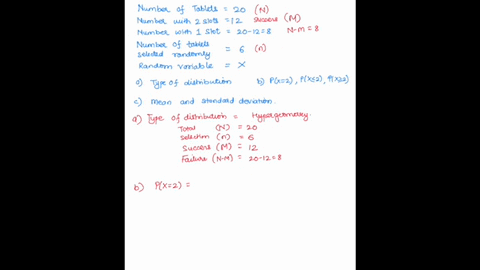 Number of Tablets = 20 (N)
Number with 2 Slots = 12 Success (M)
Number with 1 Slot = 20-12=8 N-M=8
Number of tablets
selected randomly = 6 (n)
Random variable = X
a) Type of distribution b) P(x=2), P(X≤2), P(X≥2)
c) Mean and standard deviation.
a) Type of distribution = Hypergeometry
Total (N) = 20
Selection (n) = 6
Success (M) = 12
Failure (N-M) = 20-12=8
b) P(X=2) =